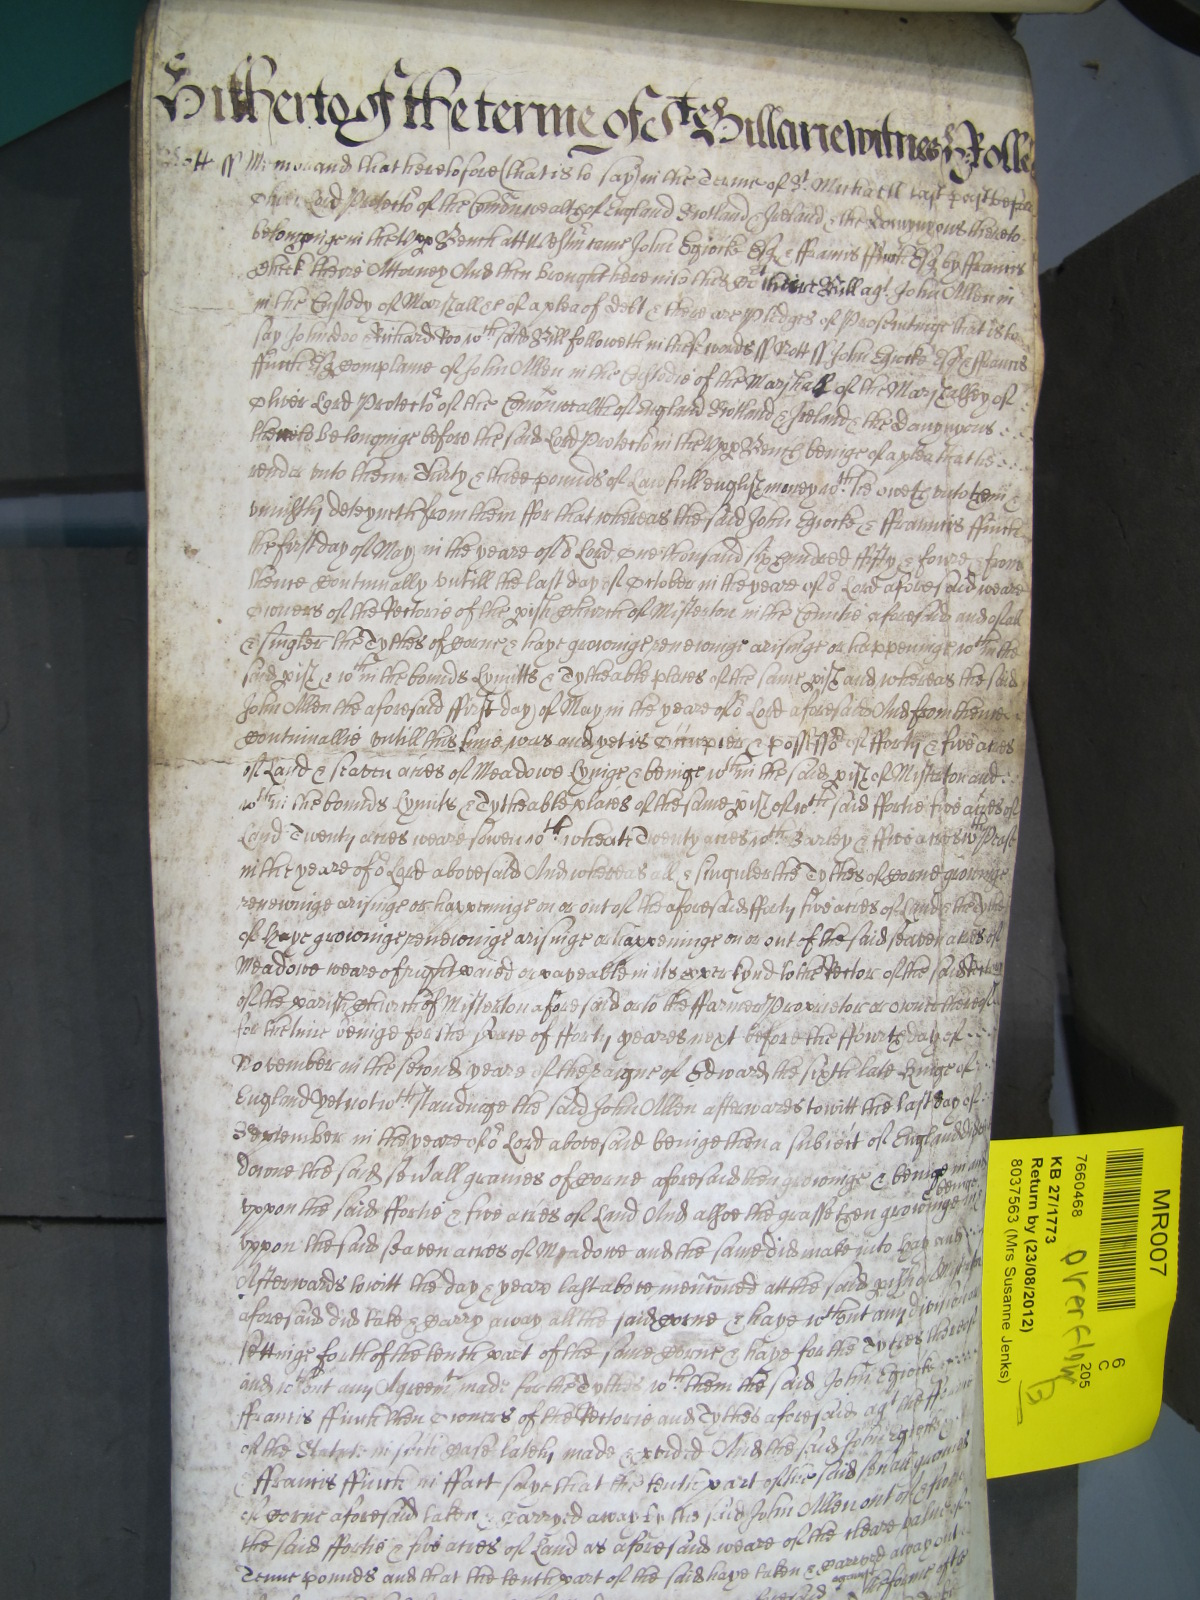 Hitherto of the terme of St Hillarie witnes H Rolle
Nott ss Memorand that heretofore (that is to say) in the Terme of St Michaell last past before
Oliver Lord Protector of the Comonwealth of England Scotland & Ireland & the domynyons thereto
belonginge in the Upp Bench att Westmr came John Egiocke Esqr & ffrancis ffinch Esqr by ffrancis
Cheek their Attorney And then brought here into the Cort their Bill agt John Allen in
in the Custody of Marshall &c of a plea of debt & there are pledges of Prosecutinge that is to
say John doo & Richard Roo wch said Bill followeth in these words ss Nott ss John Egiocke Esqr & ffrancis
ffinch Esqr complaine of John Allen in the Custodie of the Marshall of the Marshalsey of
Oliver Lord Protector of the Comonwealth of England Scotland & Ireland & the domynyons
thereto belonginge before the said Lord Protector in the Upp Bench beinge of a plea that he
render unto them Thirty & three pounds of Lawfull english money wch he oweth unto them &
uniustly deteyneth from them ffor that whereas the said John Egiocke & ffrancis ffinch
the first day of May in the yeare of or Lord One thousand six hundred fifty & fowre & from
thence Contynually untill the last day of October in the yeare of or Lord aforesaid weare
Owners of the Rectorie of the pish Church of Misterton in the Countie aforesaid and of all
& singler the Tythes of Corne & haye growinge renewinge arisinge or happeninge wthin the
said pish & wthin the bounds Lymitts & Tytheable places of the same pish and whereas the said
John Allen the aforesaid ffirst day of May in the yeare of or Lord aforesaid And from thence
Contynuallie untill this time was and yet is Occupier & possessor of fforty & five acres
of Land & seaven acres of Meadowe Lyinge & beinge wthin the said pish of Misterton and
wthin the bounds Lymits & Tytheable places of the same pish of wch said ffortie five acres of
Land Twenty acres weare sowen wth wheate Twenty acres wth Barley & ffive acres wth Pease
in the yeare of or Lord abovesaid And whereas all & singuler the Tythes of Corne growinge
renewinge arisinge or happeninge on or out of the aforesaid fforty five acres of Land & the Tythes
of Haye growinge renewinge arisinge or happeninge on or out of the said seaven acres of
Meadowe weare of right paied or payeable in its pper kynd to the Rector of the said Rectory
of the parish Church of Misterton aforesaid or to the ffarmer Proprietor or owner thereof
for the time beinge for the space of fforty yeares next before the ffowrth day of
November in the second yeare of the raigne of Edward the sixth late Kinge of
England Yet notwthstandinge the said John Allen afterwards to witt the last day of
September in the yeare of or Lord abovesaid beinge then a subiect of England did cutt
downe the said sevall graines of Corne aforesaid then growinge & beinge in and
uppon the said ffortie & five acres of Land And alsoe the grasse then growinge & beinge in &
uppon the said seaven acres of Meadowe and the same did make into hay and
Afterwards to witt the day & yeare last above menconed att the said pish of Misterton
aforesaid did take & Carry away all the said Corne & haye wthout any division or
settinge forth of the tenth part of the same Corne & haye for the Tythes thereof
and wthout any Agreemt made for the Tythes wth them the said John Egiocke
ffrancis ffinch then Owners of the Rectorie and Tythes aforesaid agt the fforme
of the Statute in such Case lately made & pvided And the said John Egiocke
& ffrancis ffinch in ffact saye that the tenth part of the said sevall graines
of Corne aforesaid taken & Carryed away by the said John Allen out of & from
the said ffortie & five acres of Land as aforesaid weare of the cleare value of
Tenne pounds and that the tenth part of the said haye taken & Carryed away out
the forme of the
MR007
6
C
205
7660468
KB 27/1773
Return by (23/08/2012)
8037563 (Mrs Susanne Jenks)
overflow